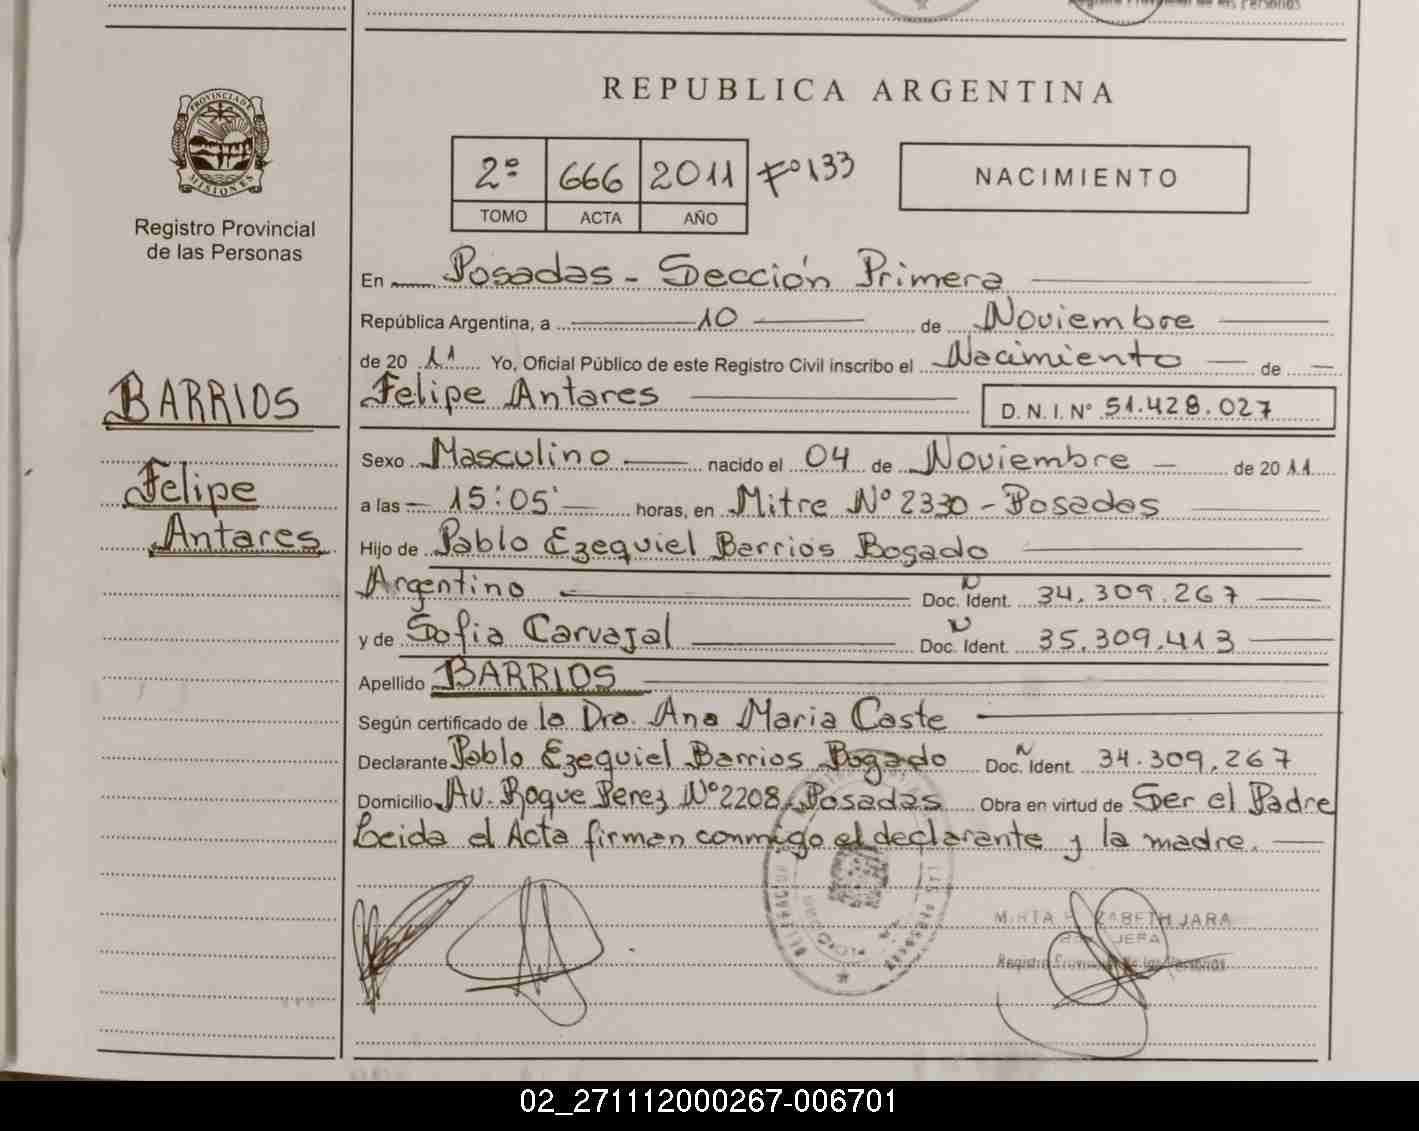 REPUBLICA ARGENTINA
PROVINCIA DE
MISIONES
Registro Provincial
de las Personas
2º 666 2011 Fº 133
TOMO ACTA AÑO
NACIMIENTO
En Posadas - Sección Primera
República Argentina, a 10 de Noviembre
de 20 11 Yo, Oficial Público de este Registro Civil inscribo el Nacimiento de
Felipe Antares
D.N.I. Nº 51.428.027
BARRIOS
Felipe
Antares
Sexo Masculino nacido el 04 de Noviembre de 20 11
a las 15:05' horas, en Mitre Nº 2330 - Posadas
Hijo de Pablo Ezequiel Barrios Bogado
Argentino Doc. Ident. 34.309.267
y de Sofia Carvajal Doc. Ident. 35.309.413
Apellido BARRIOS
Según certificado de la Dra. Ana Maria Caste
Declarante Pablo Ezequiel Barrios Bogado Doc. Ident. 34.309.267
Domicilio Av. Roque Perez Nº 2208 - Posadas Obra en virtud de Ser el Padre
Leida el Acta firman conmigo el declarante y la madre.
MIRTA JARA
JEFA
Registro de las Personas
02_271112000267-006701